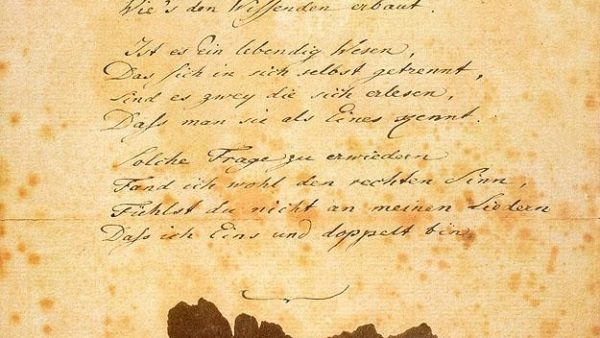 Wie's den Wissenden erbaut.
Ist es Ein lebendig Wesen,
Das sich in sich selbst getrennt,
Sind es zwey die sich erlesen,
Dass man sie als Eines kennt.
Solche Frage zu erwiedern
Fand ich wohl den rechten Sinn,
Fühlst du nicht an meinen Liedern
Dass ich Eins und doppelt bin